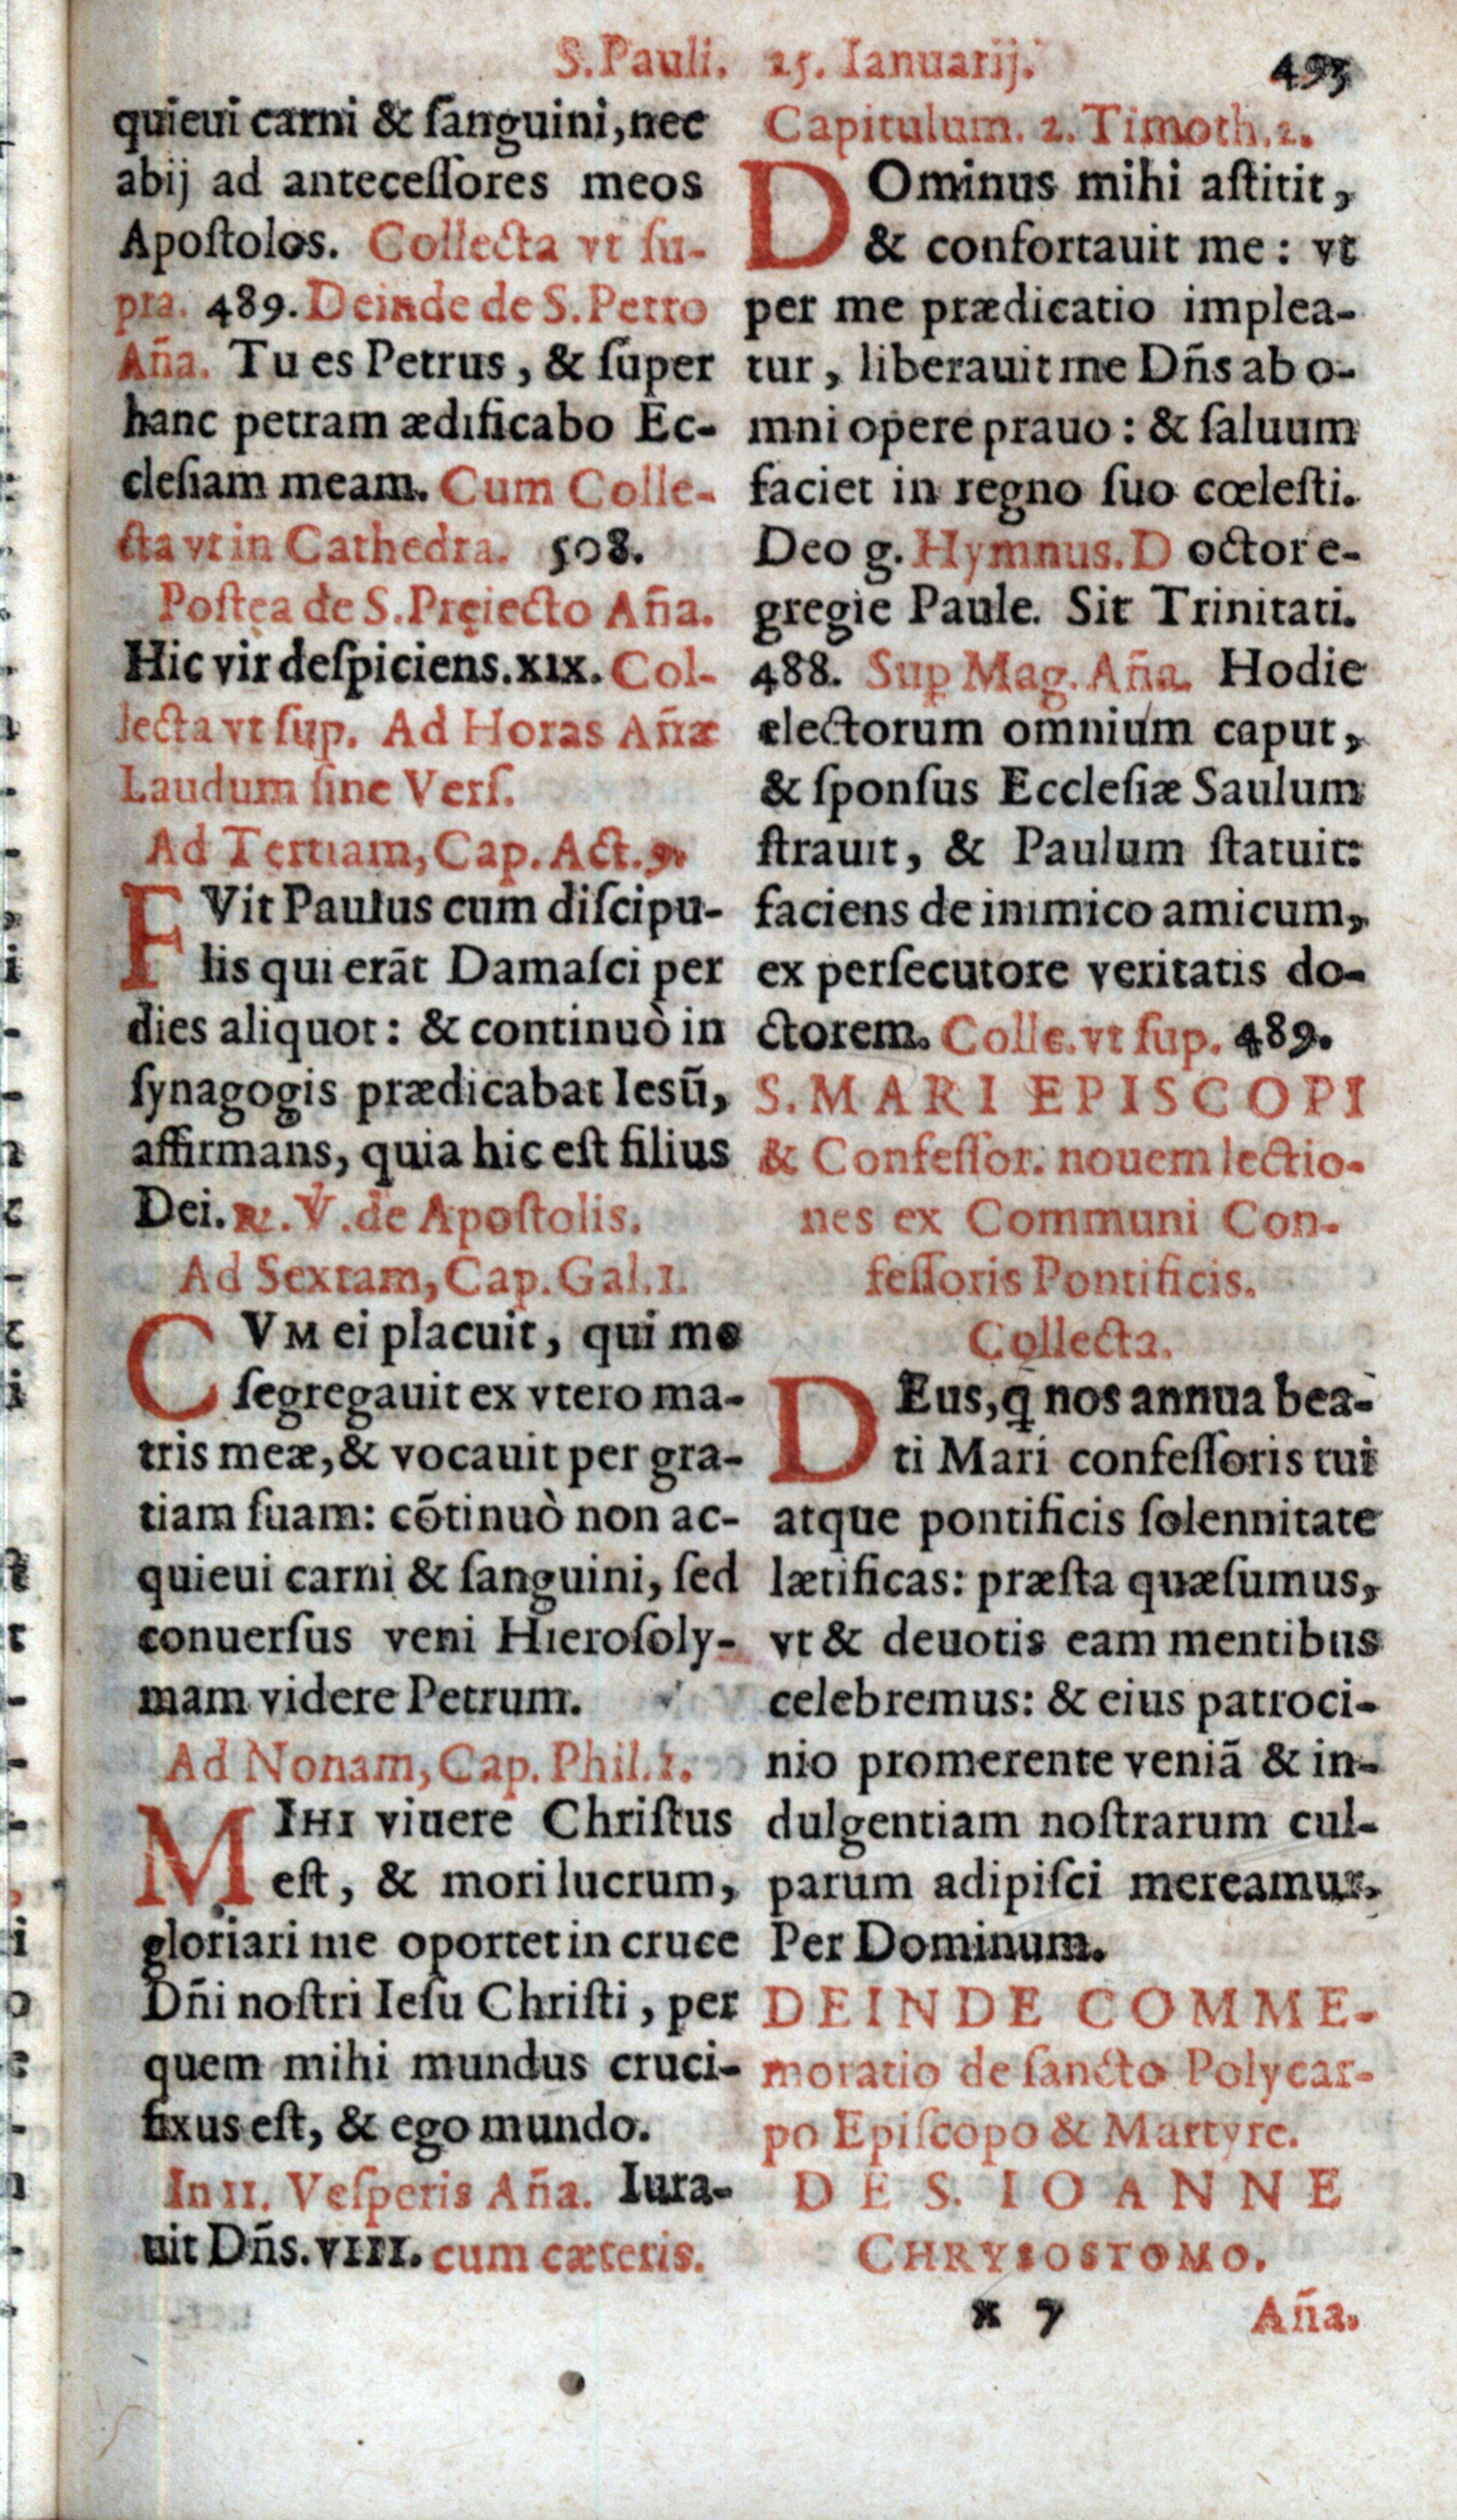 S. Pauli. 25. Ianuarij. 493
quieui carni & ſanguini, nec
abij ad anteceſſores meos
Apoſtolos. Collecta vt ſu-
pra. 489. Deinde de S. Petro
Aña. Tu es Petrus, & ſuper
hanc petram ædificabo Ec-
cleſiam meam. Cum Colle-
cta vt in Cathedra. 508.
Poſtea de S. Pręiecto Aña.
Hic vir deſpiciens. XIX. Col-
lecta vt ſup. Ad Horas Añæ
Laudum ſine Verſ.
Ad Tertiam, Cap. Act. 9.
FVit Paulus cum diſcipu-
lis qui erãt Damaſci per
dies aliquot: & continuò in
ſynagogis prædicabat Ieſũ,
affirmans, quia hic eſt filius
Dei. ℞. ℣. de Apoſtolis.
Ad Sextam, Cap. Gal. 1.
CVM ei placuit, qui me
ſegregauit ex vtero ma-
tris meæ, & vocauit per gra-
tiam ſuam: cõtinuò non ac-
quieui carni & ſanguini, ſed
conuerſus veni Hieroſoly-
mam videre Petrum.
Ad Nonam, Cap. Phil. 1.
MIHI viuere Chriſtus
eſt, & mori lucrum,
gloriari me oportet in cruce
Dñi noſtri Ieſu Chriſti, per
quem mihi mundus cruci-
fixus eſt, & ego mundo.
In II. Veſperis Aña. Iura-
uit Dñs. VIII. cum cæteris.
Capitulum. 2. Timoth. 2.
DOminus mihi aſtitit,
& confortauit me: vt
per me prædicatio implea-
tur, liberauit me Dñs ab o-
mni opere prauo: & ſaluum
faciet in regno ſuo cœleſti.
Deo g. Hymnus. Doctor e-
gregie Paule. Sit Trinitati.
488. Sup Mag. Aña. Hodie
electorum omnium caput,
& ſponſus Eccleſiæ Saulum
ſtrauit, & Paulum ſtatuit:
faciens de inimico amicum,
ex perſecutore veritatis do-
ctorem. Colle. vt ſup. 489.
S. MARI EPISCOPI
& Confeſſor. nouem lectio-
nes ex Communi Con-
feſſoris Pontificis.
Collecta.
DEus, q̃ nos annua bea-
ti Mari confeſſoris tui
atque pontificis ſolennitate
lætificas: præſta quæſumus,
vt & deuotis eam mentibus
celebremus: & eius patroci-
nio promerente veniã & in-
dulgentiam noſtrarum cul-
parum adipiſci mereamur.
Per Dominum.
DEINDE COMME-
moratio de ſancto Polycar-
po Epiſcopo & Martyre.
DE S. IOANNE
CHRYSOSTOMO.
x 7 Aña.